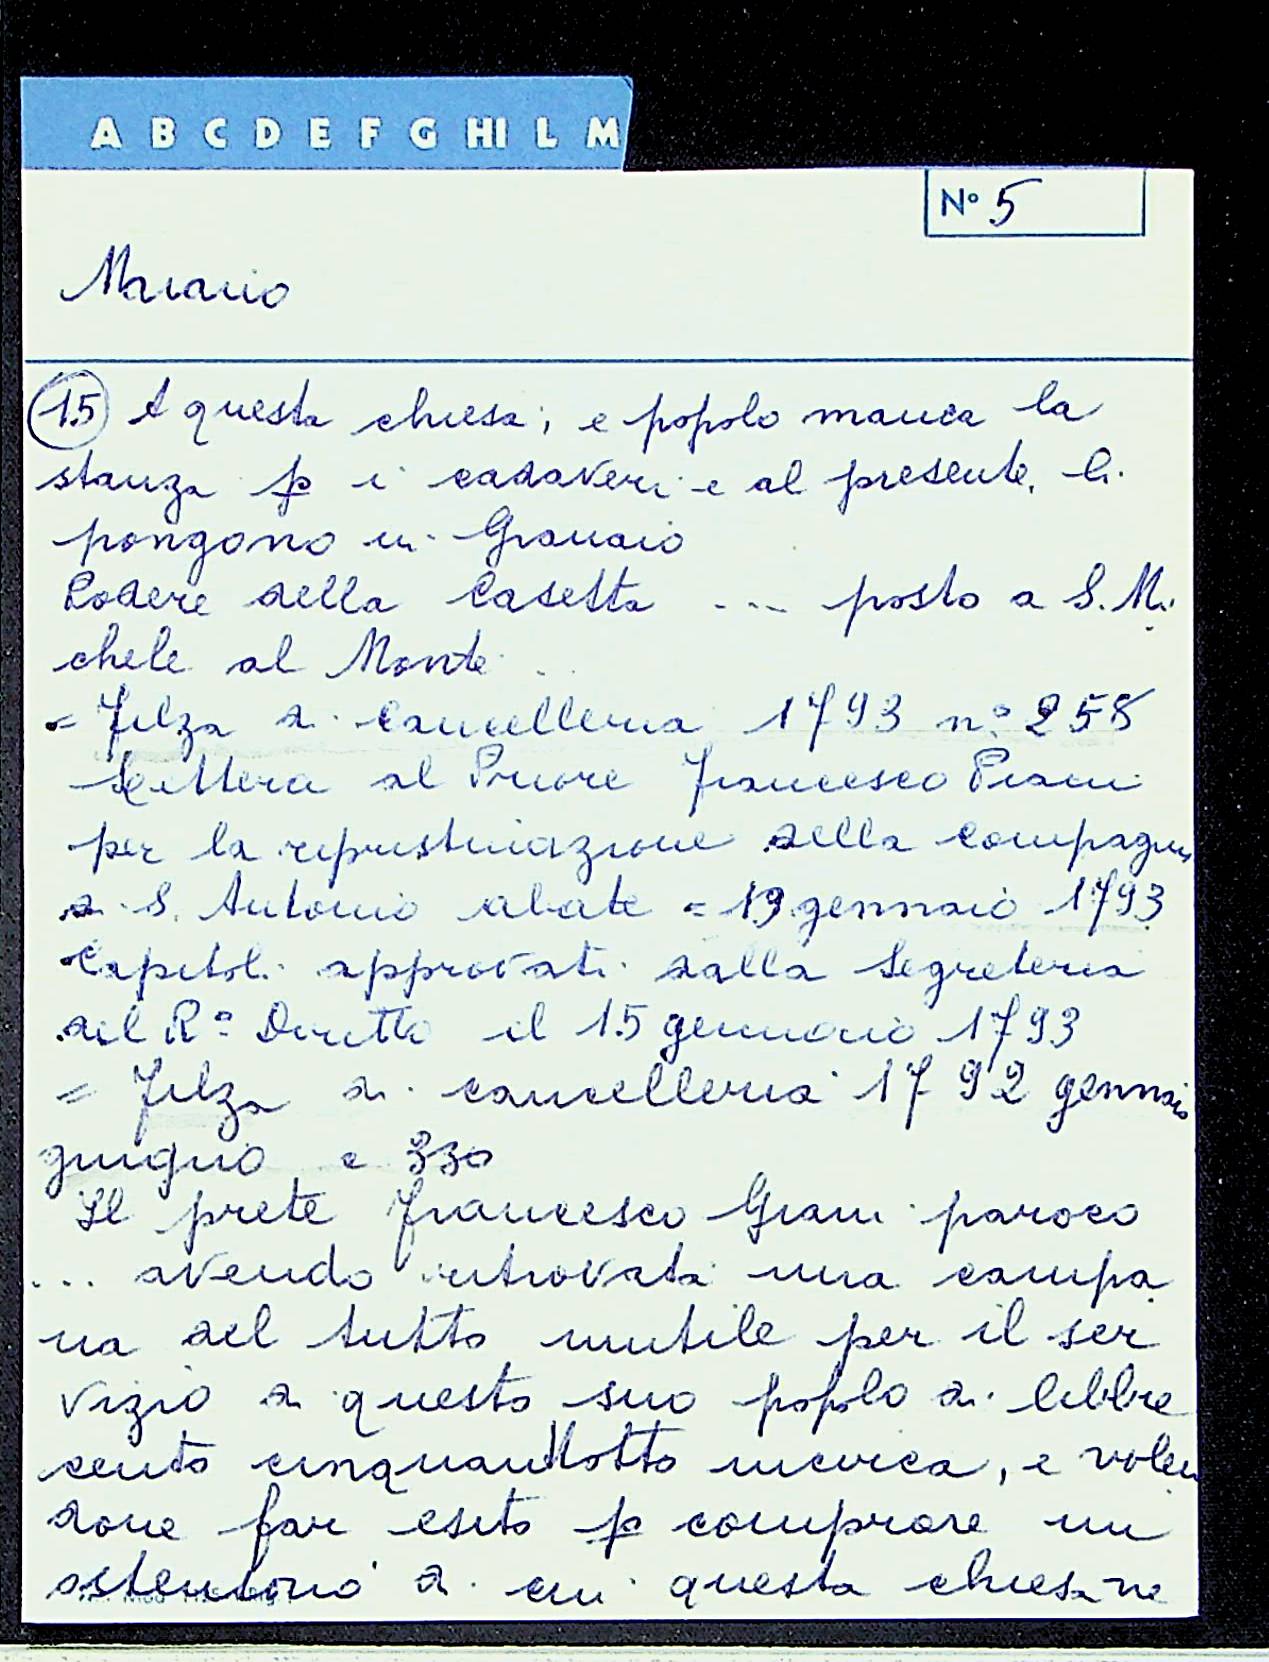 A B C D E F G HI L M
N° 5
15 A questa chiesa, e popolo manca la
stanza p i cadaveri e al presente, li
pongono in Granaio
Podere della Casetta --- posto a S. Mi
chele al Monte
= Filza di Cancelleria 1793 n° 258
Lettera al Priore Francesco Piani
per la ripristinazione della compagnia
di S. Antonio abate = 19 gennaio 1793
Capitoli approvati dalla Segreteria
del R° Diritto il 15 gennaio 1793
= Filza di cancelleria 1792 gennaio
giugno c 330
Il prete Francesco Giani paroco
... avendo ritrovata una campa
na del tutto inutile per il ser
vizio di questo suo popolo di libbre
cento cinquantotto incirca, e volen
done far esito p comprare un
ostensorio di cui questa chiesa ne